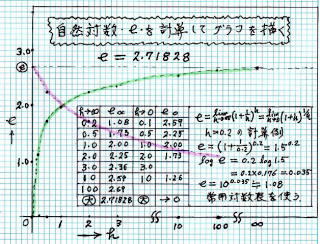 自然対数・eを計算してグラフを描く
e = 2.71828
3.0
e
2.0
1.0
e
h→∞ e∞ h→0 e0
0.2 1.08 0.1 2.59
0.5 1.73 0.5 2.25
1.0 2.00 1.0 2.00
2.0 2.25 2.0 1.73
3.0 2.36 3.0
10 2.59 10 1.26
100 2.69
大 2.71828 大 →0
h=0.2の計算例
e=(1+1/0.2)^0.2=1.5^0.2
log e = 0.2 log 1.5
=0.2×0.176=0.035
e=10^0.035≒1.08
常用対数表を使う
0 1 2 3 10 100 ∞
→h